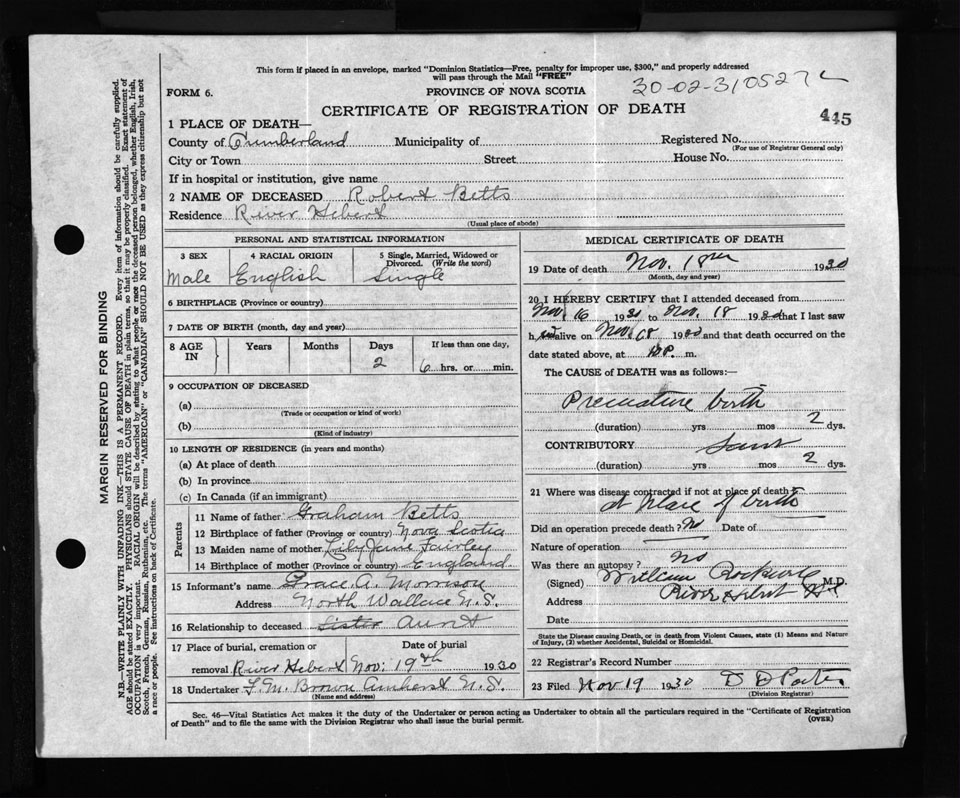 This form if placed in an envelope, marked "Dominion Statistics—Free, penalty for improper use, $300," and properly addressed
will pass through the Mail "FREE"
FORM 6.
PROVINCE OF NOVA SCOTIA
30-02-310527
CERTIFICATE OF REGISTRATION OF DEATH
445
1 PLACE OF DEATH—
County of Cumberland Municipality of Registered No.
(For use of Registrar General only)
City or Town Street House No.
If in hospital or institution, give name
2 NAME OF DECEASED Robert Betts
Residence River Hebert
(Usual place of abode)
PERSONAL AND STATISTICAL INFORMATION
3 SEX 4 RACIAL ORIGIN 5 Single, Married, Widowed or
Divorced. (Write the word)
Male English Single
6 BIRTHPLACE (Province or country)
7 DATE OF BIRTH (month, day and year)
8 AGE IN Years Months Days If less than one day,
2 6 hrs. or min.
9 OCCUPATION OF DECEASED
(a)
(Trade or occupation or kind of work)
(b)
(Kind of industry)
10 LENGTH OF RESIDENCE (in years and months)
(a) At place of death
(b) In province
(c) In Canada (if an immigrant)
Parents
11 Name of father Graham Betts
12 Birthplace of father (Province or country) Nova Scotia
13 Maiden name of mother Lily Jane Fairley
14 Birthplace of mother (Province or country) England
15 Informant's name Grace A. Morrison
Address North Wallace N.S.
16 Relationship to deceased Sister Aunt
17 Place of burial, cremation or Date of burial
removal River Hebert Nov: 19th 1930
18 Undertaker F. M. Brown Amherst N.S.
(Name and address)
MEDICAL CERTIFICATE OF DEATH
19 Date of death Nov. 18th 1930
(Month, day and year)
20 I HEREBY CERTIFY that I attended deceased from
Nov 16 1930 to Nov. 18 1930 that I last saw
h alive on Nov 18 1930 and that death occurred on
date stated above, at m.
The CAUSE of DEATH was as follows:—
Premature birth
(duration) yrs mos 2 dys.
CONTRIBUTORY Same
(duration) yrs mos 2 dys.
21 Where was disease contracted if not at place of death?
at place of birth
Did an operation precede death? no Date of
Nature of operation
Was there an autopsy? no
(Signed) William Rockwell M.D.
Address River Hebert
Date
State the Disease causing Death, or in death from Violent Causes, state (1) Means and Nature
of Injury, (2) whether Accidental, Suicidal or Homicidal.
22 Registrar's Record Number
23 Filed Nov 19 1930 D D
(Division Registrar)
Sec. 46—Vital Statistics Act makes it the duty of the Undertaker or person acting as Undertaker to obtain all the particulars required in the "Certificate of Registration
of Death" and to file the same with the Division Registrar who shall issue the burial permit.
(OVER)
MARGIN RESERVED FOR BINDING
N.B.—WRITE PLAINLY WITH UNFADING INK—THIS IS A PERMANENT RECORD. Every item of information should be carefully supplied.
AGE should be stated EXACTLY. PHYSICIANS should STATE CAUSE OF DEATH in plain terms, so that it may be properly classified. Exact statement of
OCCUPATION is very important. RACIAL ORIGIN will be described by stating to what people or race the deceased person belonged, whether English, Irish,
Scotch, French, German, Russian, Ruthenian, etc. The terms "AMERICAN" or "CANADIAN" SHOULD NOT BE USED as they express citizenship but not
a race or people. See instructions on back of Certificate.